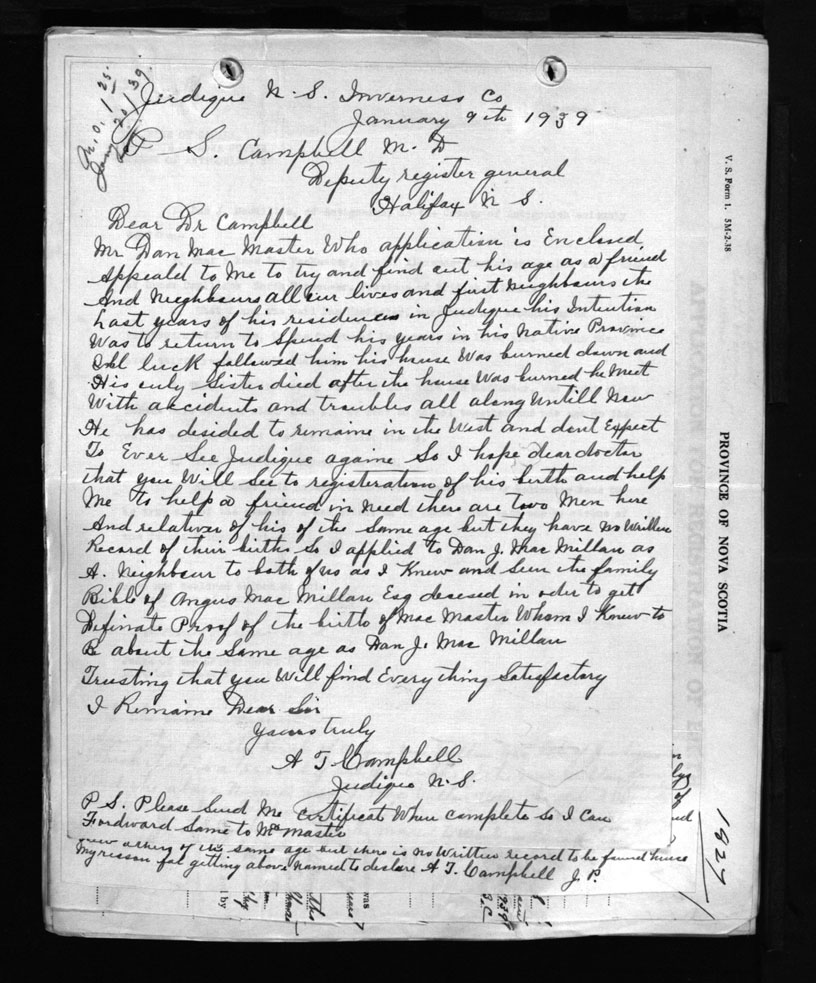 Judique N. S. Inverness Co
January 9th 1939
P S. Campbell M. D
Deputy register general
Halifax N S.
Dear Dr Campbell
Mr Dan Mac Master Who application is Enclosed
Appeald to Me to try and find out his age as a friend
And Neighbours all our lives and first Neighbours the
Last years of his residences in Judique his Intention
Was to return to Spend his years in his Native Province
Ill luck followed him his house Was burned down and
His only Sister died after the house Was burned he Meet
With accidents and troubles all along Untill Now
He has decided to remaine in the West and dont Expect
To Ever See Judique againe So I hope dear doctor
that you Will See to registration of his birth and help
Me to help a friend in need there are two Men here
And relatives of his of the Same age but they have No Written
Record of their births So I applied to Dan J. Mac Millan as
A. Neighbour to both of us as I Knew and Seen the family
Bible of Angus Mac Millan Esq desesed in oder to get
Definate Proof of the birth of Mac Master Whom I Knew to
B about the Same age as Dan J. Mac Millan
Trusting that you Will find Every thing Satisfactory
I Remaine Dear Sir
Yours truly
A J Campbell
Judique N. S.
P S. Please Send Me Certificat When complete So I Can
Fordward Same to Mc Master
same age but there is no Written record to be found hense
My resson for getting above named to declare A J. Campbell J. P.
V. S. Form 1. 5M-2-38
PROVINCE OF NOVA SCOTIA
1827